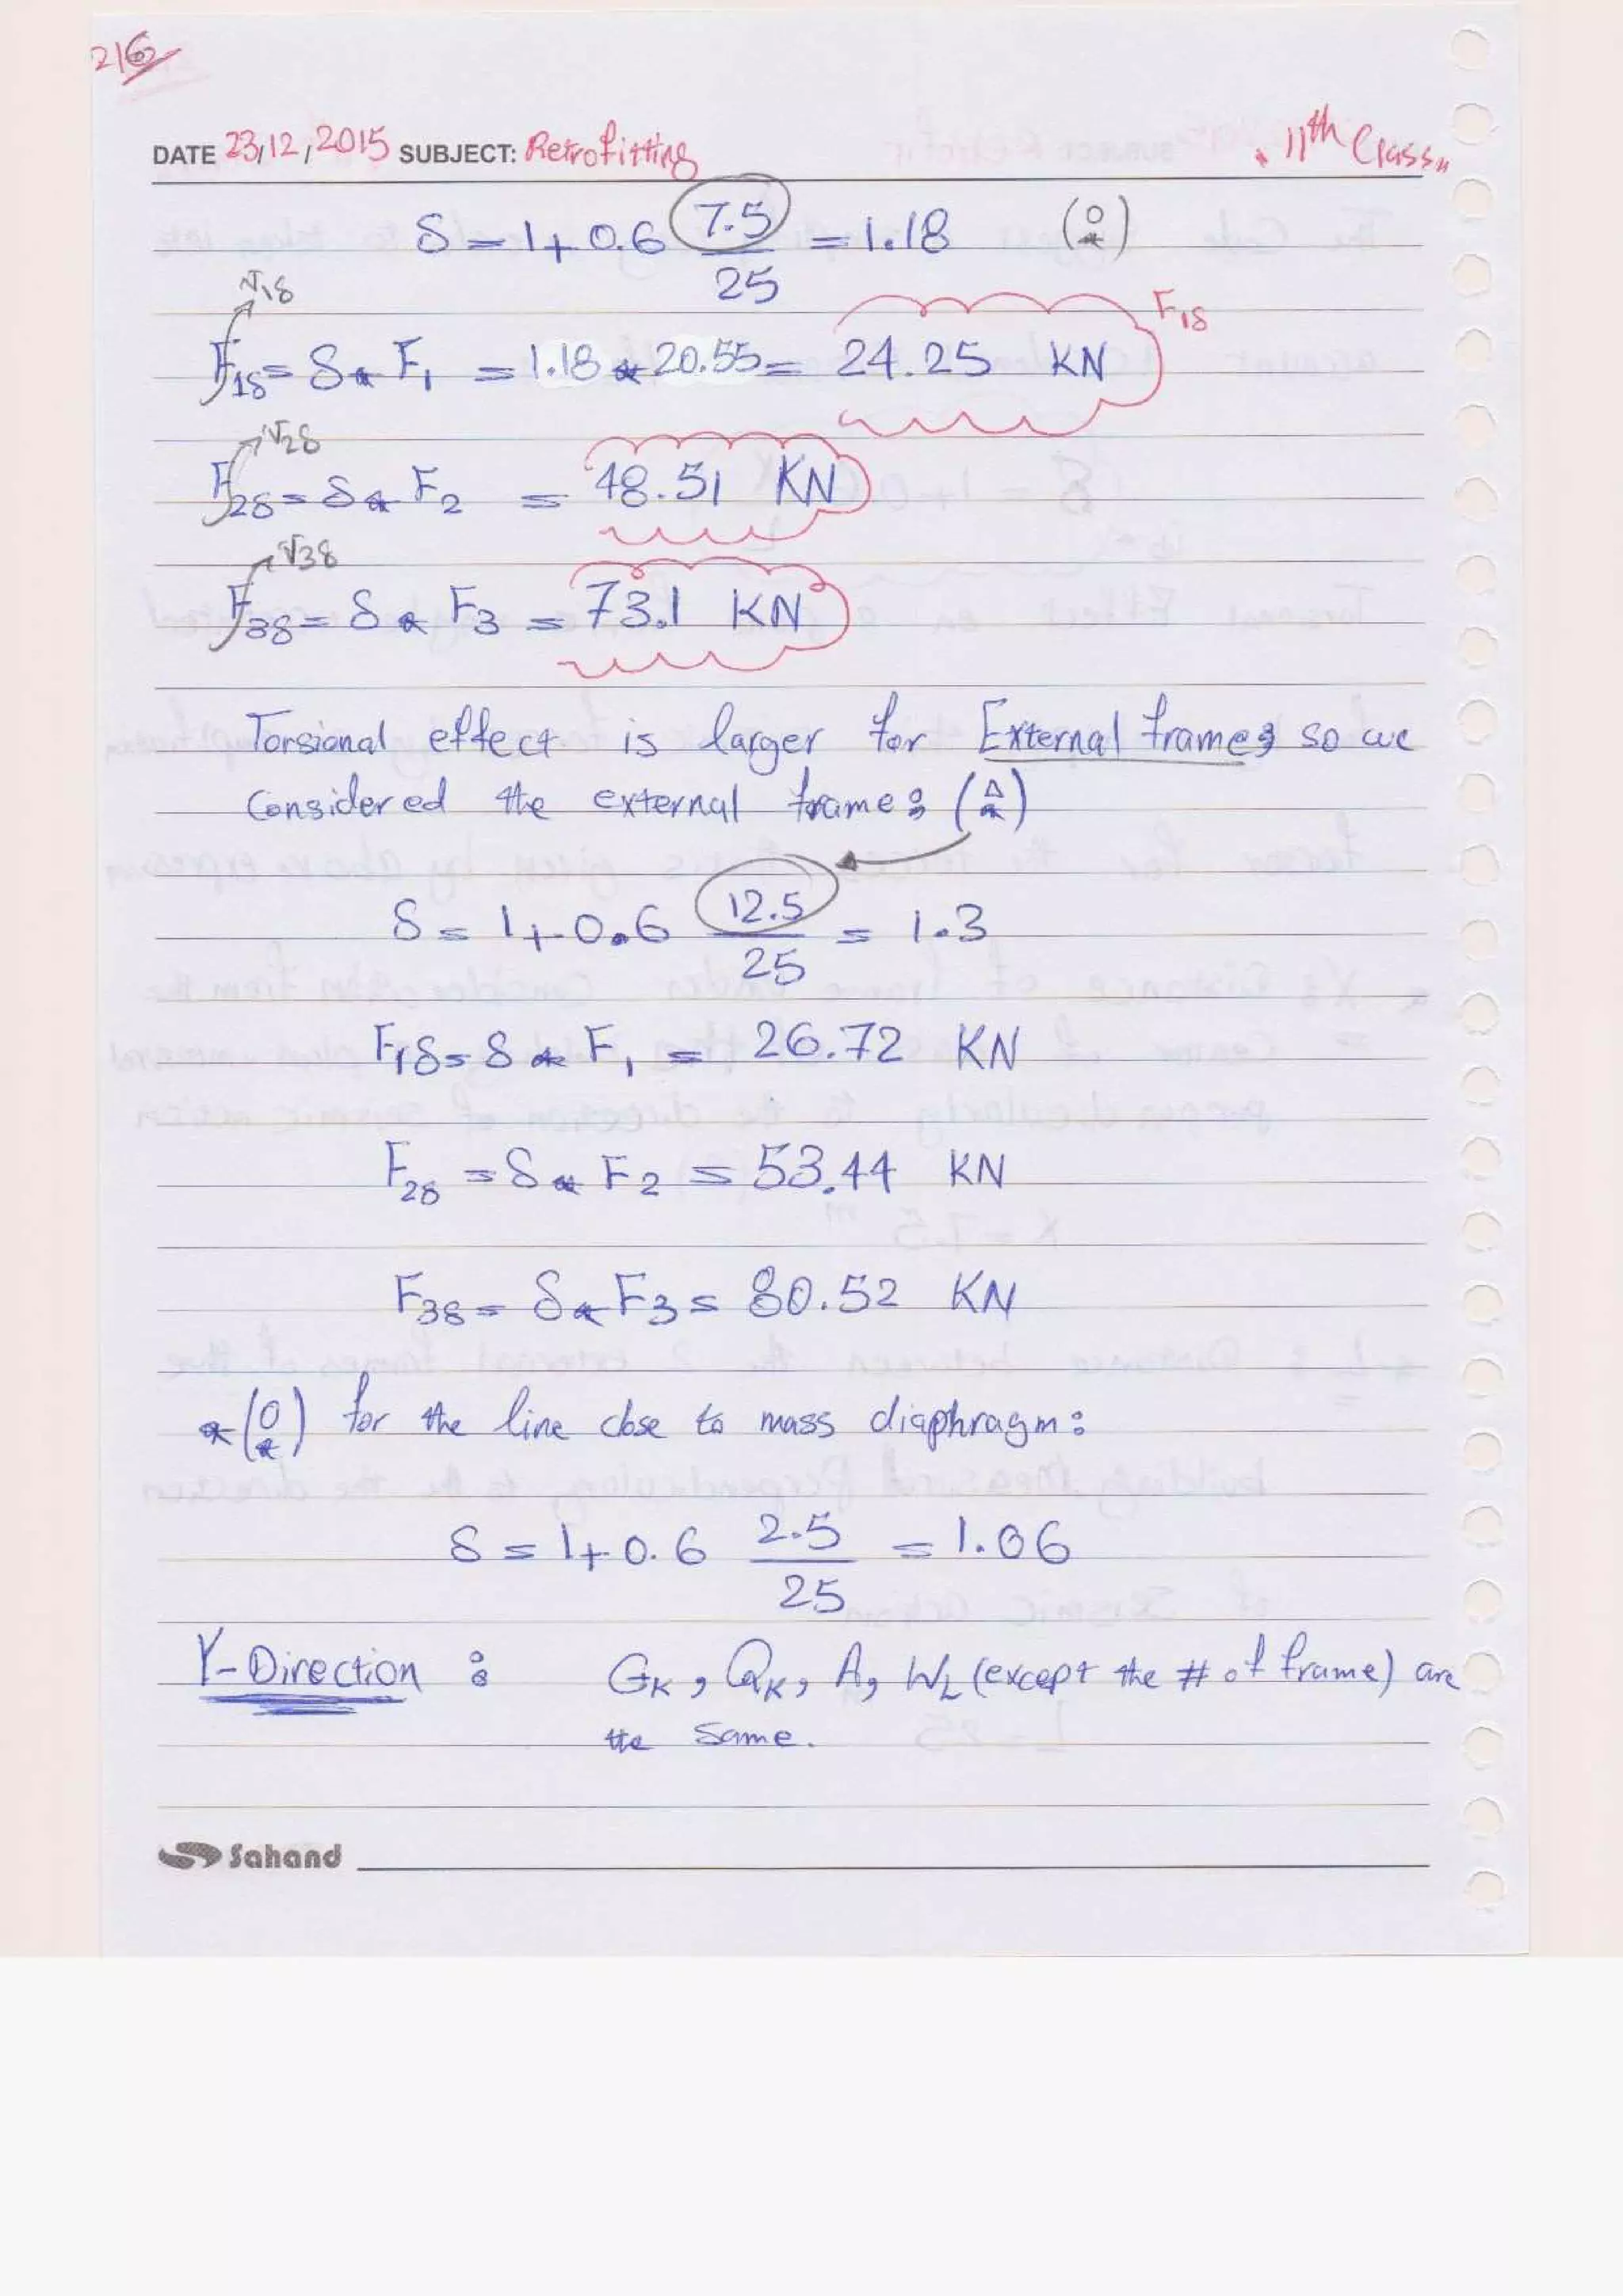 216
DATE 23/12/2015 SUBJECT: Retrofitting "11th Class"
δ = 1 + 0.6 7.5/25 = 1.18 (O*)
V1δ
F1δ = δ * F1 = 1.18 * 20.55 = 24.25 KN F1δ
V2δ
F2δ = δ * F2 = 48.51 KN
V3δ
F3δ = δ * F3 = 73.1 KN
Torsional effect is larger for External frames so we
Considered the external frame: (Δ*)
δ = 1 + 0.6 12.5/25 = 1.3
F1δ = δ * F1 = 26.72 KN
F2δ = δ * F2 = 53.44 KN
F3δ = δ * F3 = 80.52 KN
* (O*) for the line close to mass diaphragm:
δ = 1 + 0.6 2.5/25 = 1.06
Y-Direction : GK, QK, A, WL (except the # of frame) are
the same.
Sahand